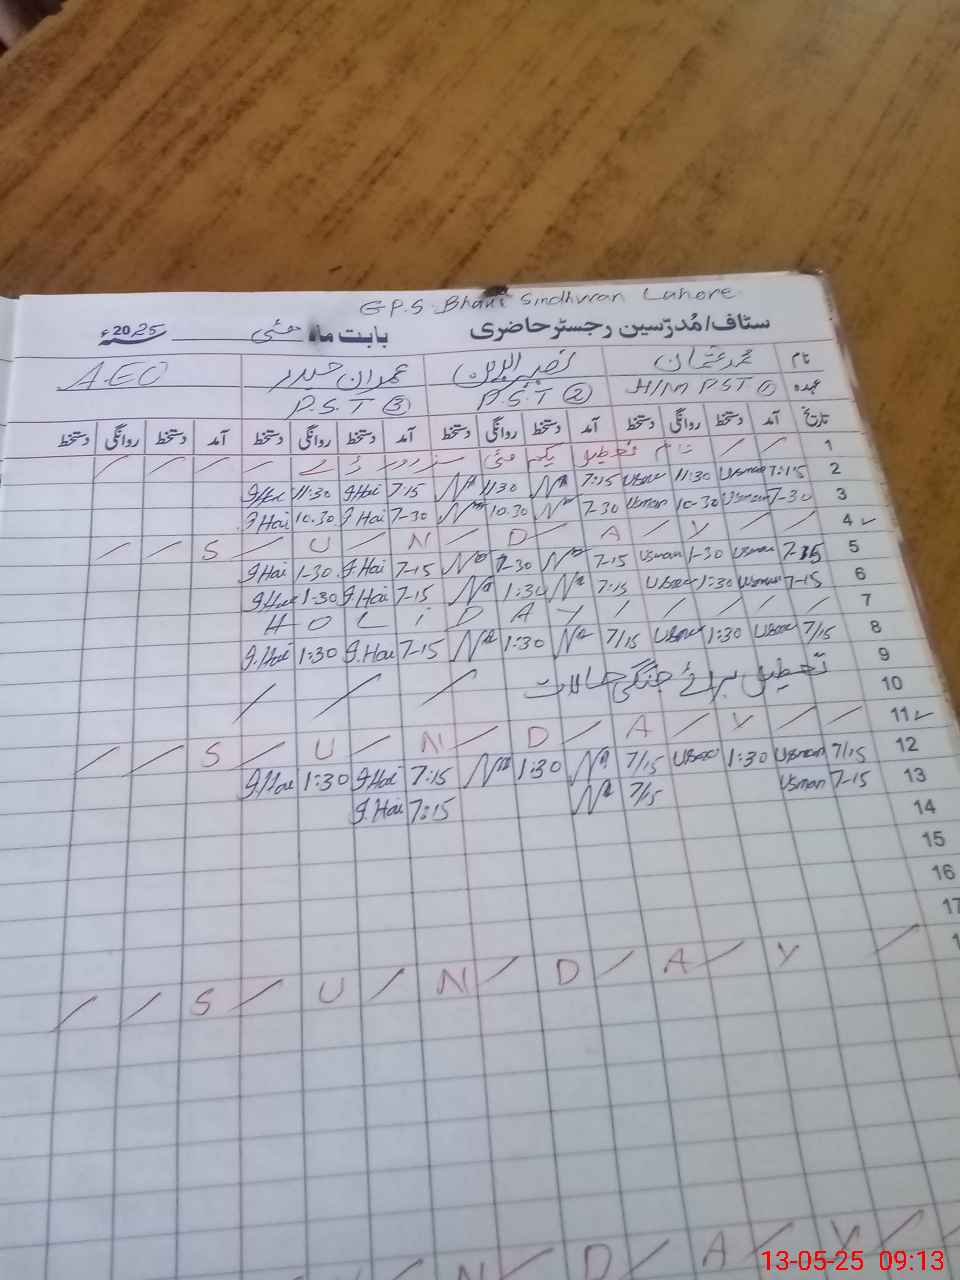 G.P.S Bhani Sindhwan Lahore
سٹاف/مُدرّسین رجسٹر حاضری بابت ماہ مئی 2025ء
نام محمد عثمان نصیر الدین عمران حیدر A.E.O
عہدہ H/M PST ① P.S.T ② P.S.T ③
تاریخ آمد دستخط روانگی دستخط آمد دستخط روانگی دستخط آمد دستخط روانگی دستخط آمد دستخط روانگی دستخط
1 / / بنام تعطیل یکم مئی / / / /
2 7:15 Usman 11:30 Usman 7:15 11:30 7:15 G.Hai 11:30 G.Hai
3 7-30 Usman 10-30 Usman 7-30 10.30 7-30 G.Hai 10.30 G.Hai
4 / / Y / A / D / N / U / S / /
5 7-15 Usman 1-30 Usman 7-15 7-15 G.Hai 1-30 G.Hai
6 7-15 Usman 1:30 Usman 7:15 1:30 7-15 G.Hai 1:30 G.Hai
7 H O L I D A Y / / / / /
8 7/15 Usman 1:30 Usman 7/15 1:30 7-15 G.Hai 1:30 G.Hai
9 تعطیل برائے جنگی حالات
10 / / /
11 / / Y / A / D / N / U / S / /
12 7/15 Usman 1:30 Usman 7/15 1:30 7:15 G.Hai 1:30 G.Hai
13 7-15 Usman 7/15 7:15 G.Hai
14
15
16
17
1 / Y / A / D / N / U / S / /
/ Y / A / D / N /
13-05-25 09:13